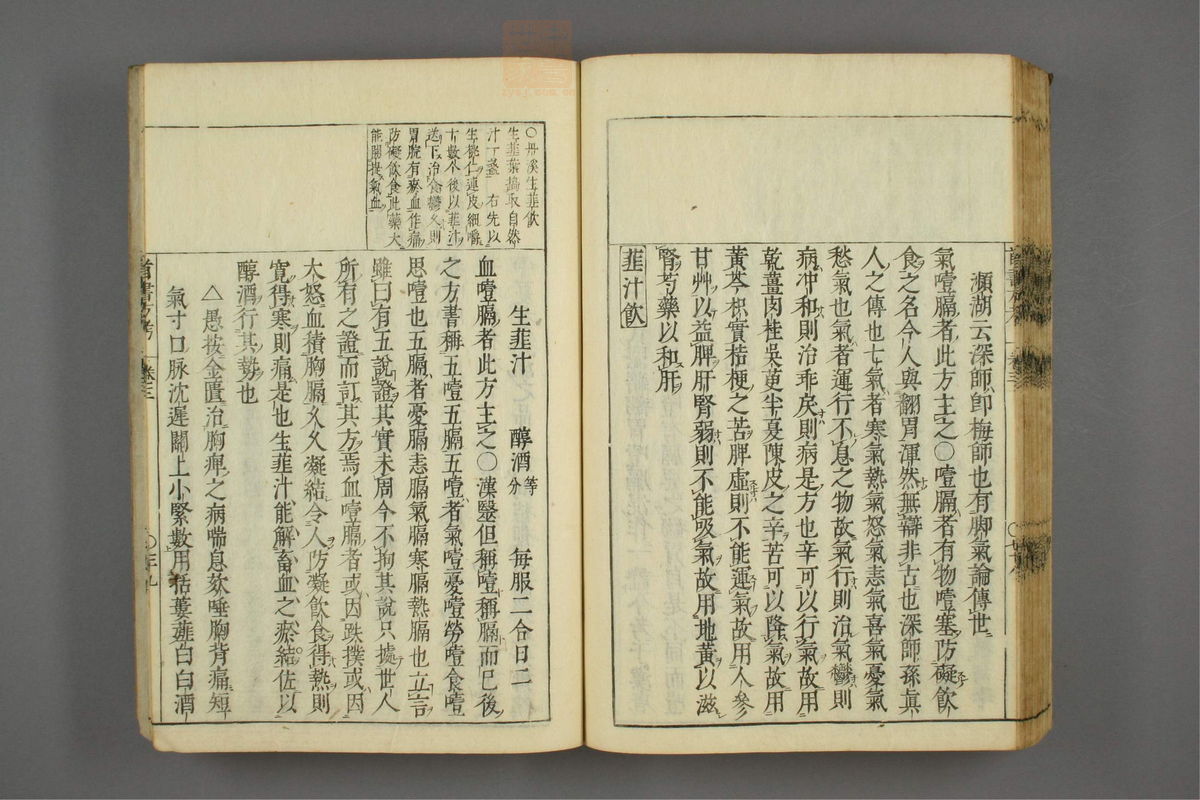 瀕湖云深師即梅師也有脚氣論傳世
氣噎膈者此方主之○噎膈者有物噎塞防礙飲
食之名今人與翻胃渾然無辯非古也深師孫眞
人之傳也七氣者寒氣熱氣怒氣恚氣喜氣憂氣
愁氣也氣者運行不息之物故氣行則治氣鬱則
病冲和則治乖戾則病是方也辛可以行氣故用
乾薑肉桂吳萸半夏陳皮之辛苦可以降氣故用
黃芩枳實桔梗之苦脾虛則不能運氣故用人參
甘艸以益脾肝腎弱則不能吸氣故用地黃以滋
腎芍藥以和肝
韮汁飲
○丹溪生韮飲
生韮葉搗取自然
汁一盞 右先以
生桃仁連皮細嚼
十數个後以韮汁
送下治食鬱久則
胃脘有瘀血作痛
妨礙飲食此藥大
能開提氣血
生韮汁 醇酒等分 每服二合日二
血噎膈者此方主之○漢毉但稱噎稱膈而已後
之方書稱五噎五膈五噎者氣噎憂噎勞噎食噎
思噎也五膈者憂膈恚膈氣膈寒膈熱膈也立言
雖曰有五說證其實未周今不拘其說只據世人
所有之證而訂其方焉血噎膈者或因跌撲或因
大怒血積胸膈久久凝結令人防凝飲食得熱則
寬得寒則痛是也生韮汁能解畜血之瘀結佐以
醇酒行其勢也
△愚按金匱治胸痺之病喘息欬唾胸背痛短
氣寸口脉沈遲關上小緊數用栝蔞薤白白酒